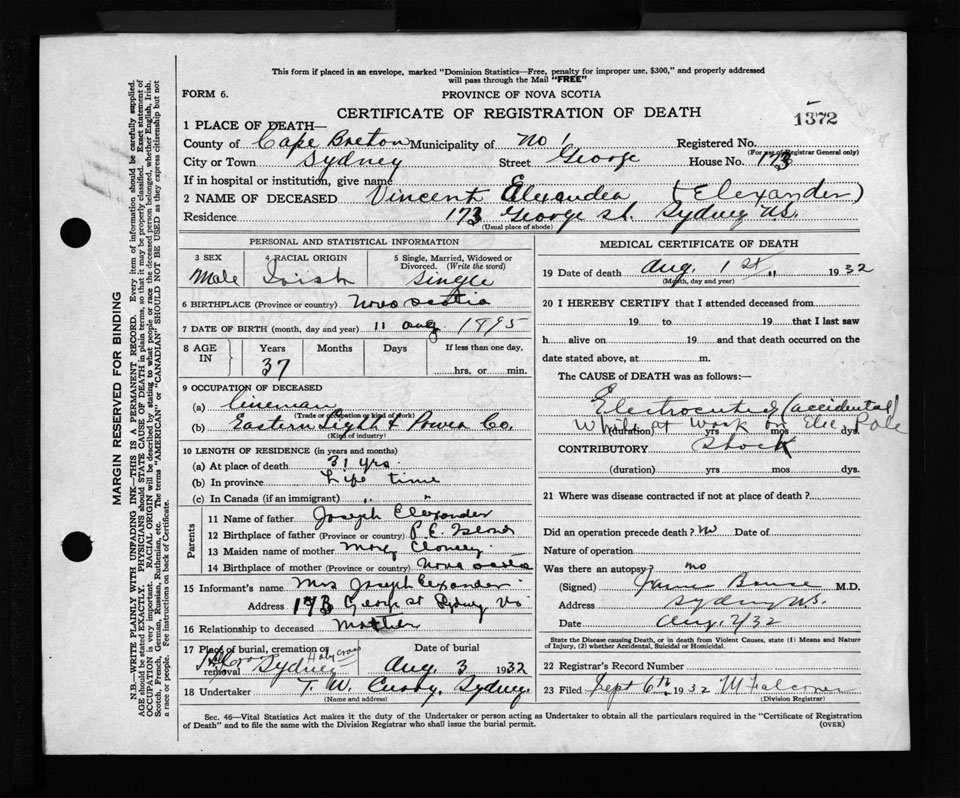 This form if placed in an envelope, marked "Dominion Statistics—Free, penalty for improper use, $300," and properly addressed
will pass through the Mail "FREE"
FORM 6.
PROVINCE OF NOVA SCOTIA
CERTIFICATE OF REGISTRATION OF DEATH
1372
1 PLACE OF DEATH—
County of Cape Breton Municipality of No 1 Registered No.
(For use of Registrar General only)
City or Town Sydney Street George House No. 173
If in hospital or institution, give name
2 NAME OF DECEASED Vincent Elexander (Elexander)
Residence 173 George St. Sydney N.S.
(Usual place of abode)
PERSONAL AND STATISTICAL INFORMATION
3 SEX 4 RACIAL ORIGIN 5 Single, Married, Widowed or
Divorced. (Write the word)
Male Irish Single
6 BIRTHPLACE (Province or country) Nova Scotia
7 DATE OF BIRTH (month, day and year) 11 Aug 1895
8 AGE IN Years Months Days If less than one day,
37 hrs. or min.
9 OCCUPATION OF DECEASED
(a) Lineman
(Trade occupation or kind of work)
(b) Eastern Light & Power Co.
(Kind of industry)
10 LENGTH OF RESIDENCE (in years and months)
(a) At place of death 31 yrs.
(b) In province Life time
(c) In Canada (if an immigrant) " "
Parents
11 Name of father Joseph Elexander
12 Birthplace of father (Province or country) P. E. Island
13 Maiden name of mother Mary
14 Birthplace of mother (Province or country) Nova Scotia
15 Informant's name Mrs Joseph Elexander
Address 173 George St Sydney
16 Relationship to deceased Mother
17 Place of burial, cremation or removal Date of burial
Holy Cross Sydney Aug. 3 1932
18 Undertaker T. W. Curry, Sydney.
(Name and address)
MEDICAL CERTIFICATE OF DEATH
19 Date of death Aug. 1st 1932
(Month, day and year)
20 I HEREBY CERTIFY that I attended deceased from
19 to 19 that I last saw
h alive on 19 and that death occurred on the
date stated above, at m.
The CAUSE of DEATH was as follows:
Electrocuted (accidental)
While at work on Elec Pole
(duration) yrs mos dys.
CONTRIBUTORY Shock
(duration) yrs mos dys.
21 Where was disease contracted if not at place of death?
Did an operation precede death? No Date of
Nature of operation
Was there an autopsy? no
(Signed) James Bruce M.D.
Address Sydney N.S.
Date Aug. 2/32
State the Disease causing Death, or in death from Violent Causes, state (1) Means and Nature
of Injury, (2) whether Accidental, Suicidal or Homicidal.
22 Registrar's Record Number
23 Filed Sept 6th 1932 M Falconer
(Division Registrar)
Sec. 46—Vital Statistics Act makes it the duty of the Undertaker or person acting as Undertaker to obtain all the particulars required in the "Certificate of Registration
of Death" and to file the same with the Division Registrar who shall issue the burial permit.
(OVER)
MARGIN RESERVED FOR BINDING
N.B.—WRITE PLAINLY WITH UNFADING INK—THIS IS A PERMANENT RECORD. Every item of information should be carefully supplied.
AGE should be stated EXACTLY. PHYSICIANS should STATE CAUSE OF DEATH in plain terms, so that it may be properly classified. Exact statement of
OCCUPATION is very important. RACIAL ORIGIN will be described by stating to what people or race the deceased person belonged, whether English, Irish,
Scotch, French, German, Russian, Ruthenian, etc. The terms "AMERICAN" or "CANADIAN" SHOULD NOT BE USED as they express citizenship but not
a race or people. See instructions on back of Certificate.